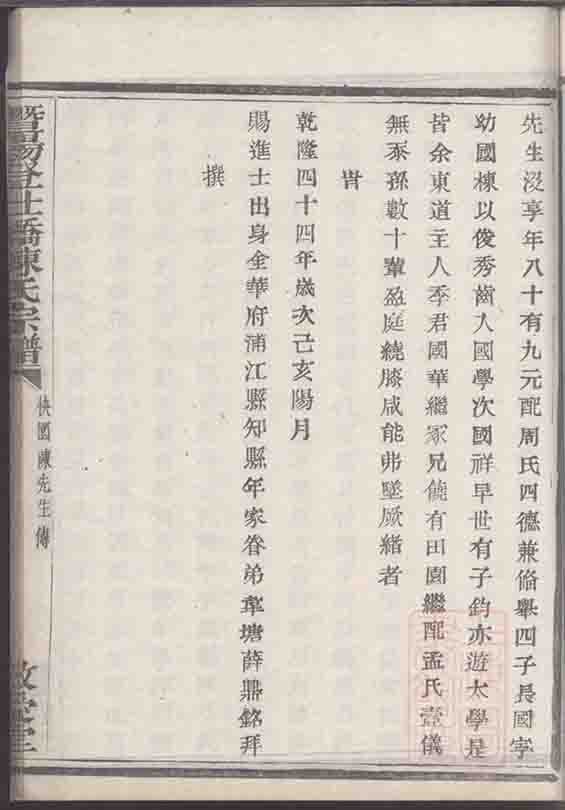 先生沒享年八十有九元配周氏四德兼俻舉四子長國字
幼國棟以俊秀齒入國學次國祥早世有子鈞亦遊太學是
皆余東道主人季君國華繼冢兄饒有田園繼配孟氏壼儀
無忝孫數十輩盈庭繞膝咸能弗墜厥緒者
旹
乾隆四十四年歲次己亥陽月
賜進士出身金華府浦江縣知縣年家眷弟韋塘薛鼎銘拜
撰
暨陽全壮橋陳氏宗譜
快園陳先生傳
敬愛堂